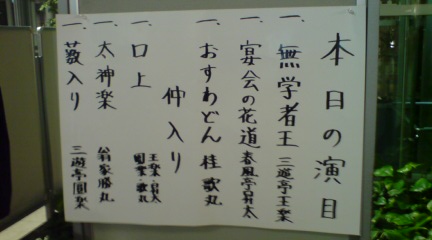 本日の演目
一、無学者王 三遊亭王楽
一、宴会の花道 春風亭昇太
一、おすわどん 桂歌丸
仲入り
一、口上 王楽・昇太 圓楽・歌丸
一、太神楽 翁家勝丸
一、薮入り 三遊亭圓楽